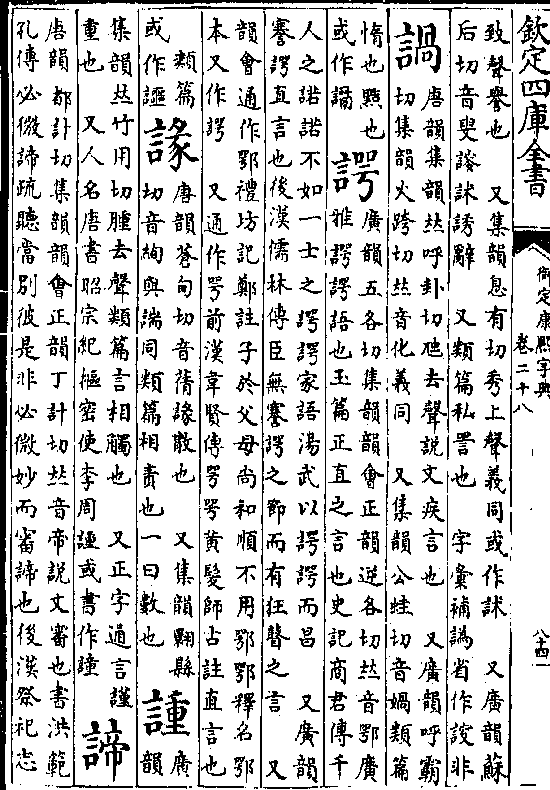 欽定四庫全書
御定康熙字典
卷二十八
八十四
致聲譽也　又集韻息有切秀上聲義同或作訹　又廣韻蘇
后切音叟謏訹誘辭　又類篇私詈也　字彙補譌省作說非
諣唐韻集韻𠀤呼卦切㕦去聲說文疾言也　又廣韻呼霸
切集韻火跨切𠀤音化義同　又集韻公蛙切音媧類篇
惰也黠也
或作譾諤廣韻五各切集韻韻會正韻逆各切𠀤音鄂廣
雅諤諤語也玉篇正直之言也史記商君傳千
人之諾諾不如一士之諤諤家語湯武以諤諤而昌　又廣韻
謇諤直言也後漢儒林傳臣無謇諤之節而有狂瞽之言　又
韻會通作鄂禮坊記鄭註子於父母尚和順不用鄂鄂釋名鄂
本又作諤　又通作咢前漢韋賢傳咢咢黃髮師古註直言也
類篇
或作讍諑唐韻蒼旬切音蒨諑散也　又集韻翾縣
切音絢與諯同類篇相責也一曰數也諥廣
韻
集韻𠀤竹用切腫去聲類篇言相觸也　又正字通言謹
重也　又人名唐書昭宗紀樞密使李周諥或書作諥諦
唐韻都計切集韻韻會正韻丁計切𠀤音帝說文審也書洪範
孔傳必微諦疏聽當別彼是非必微妙而審諦也後漢祭祀志